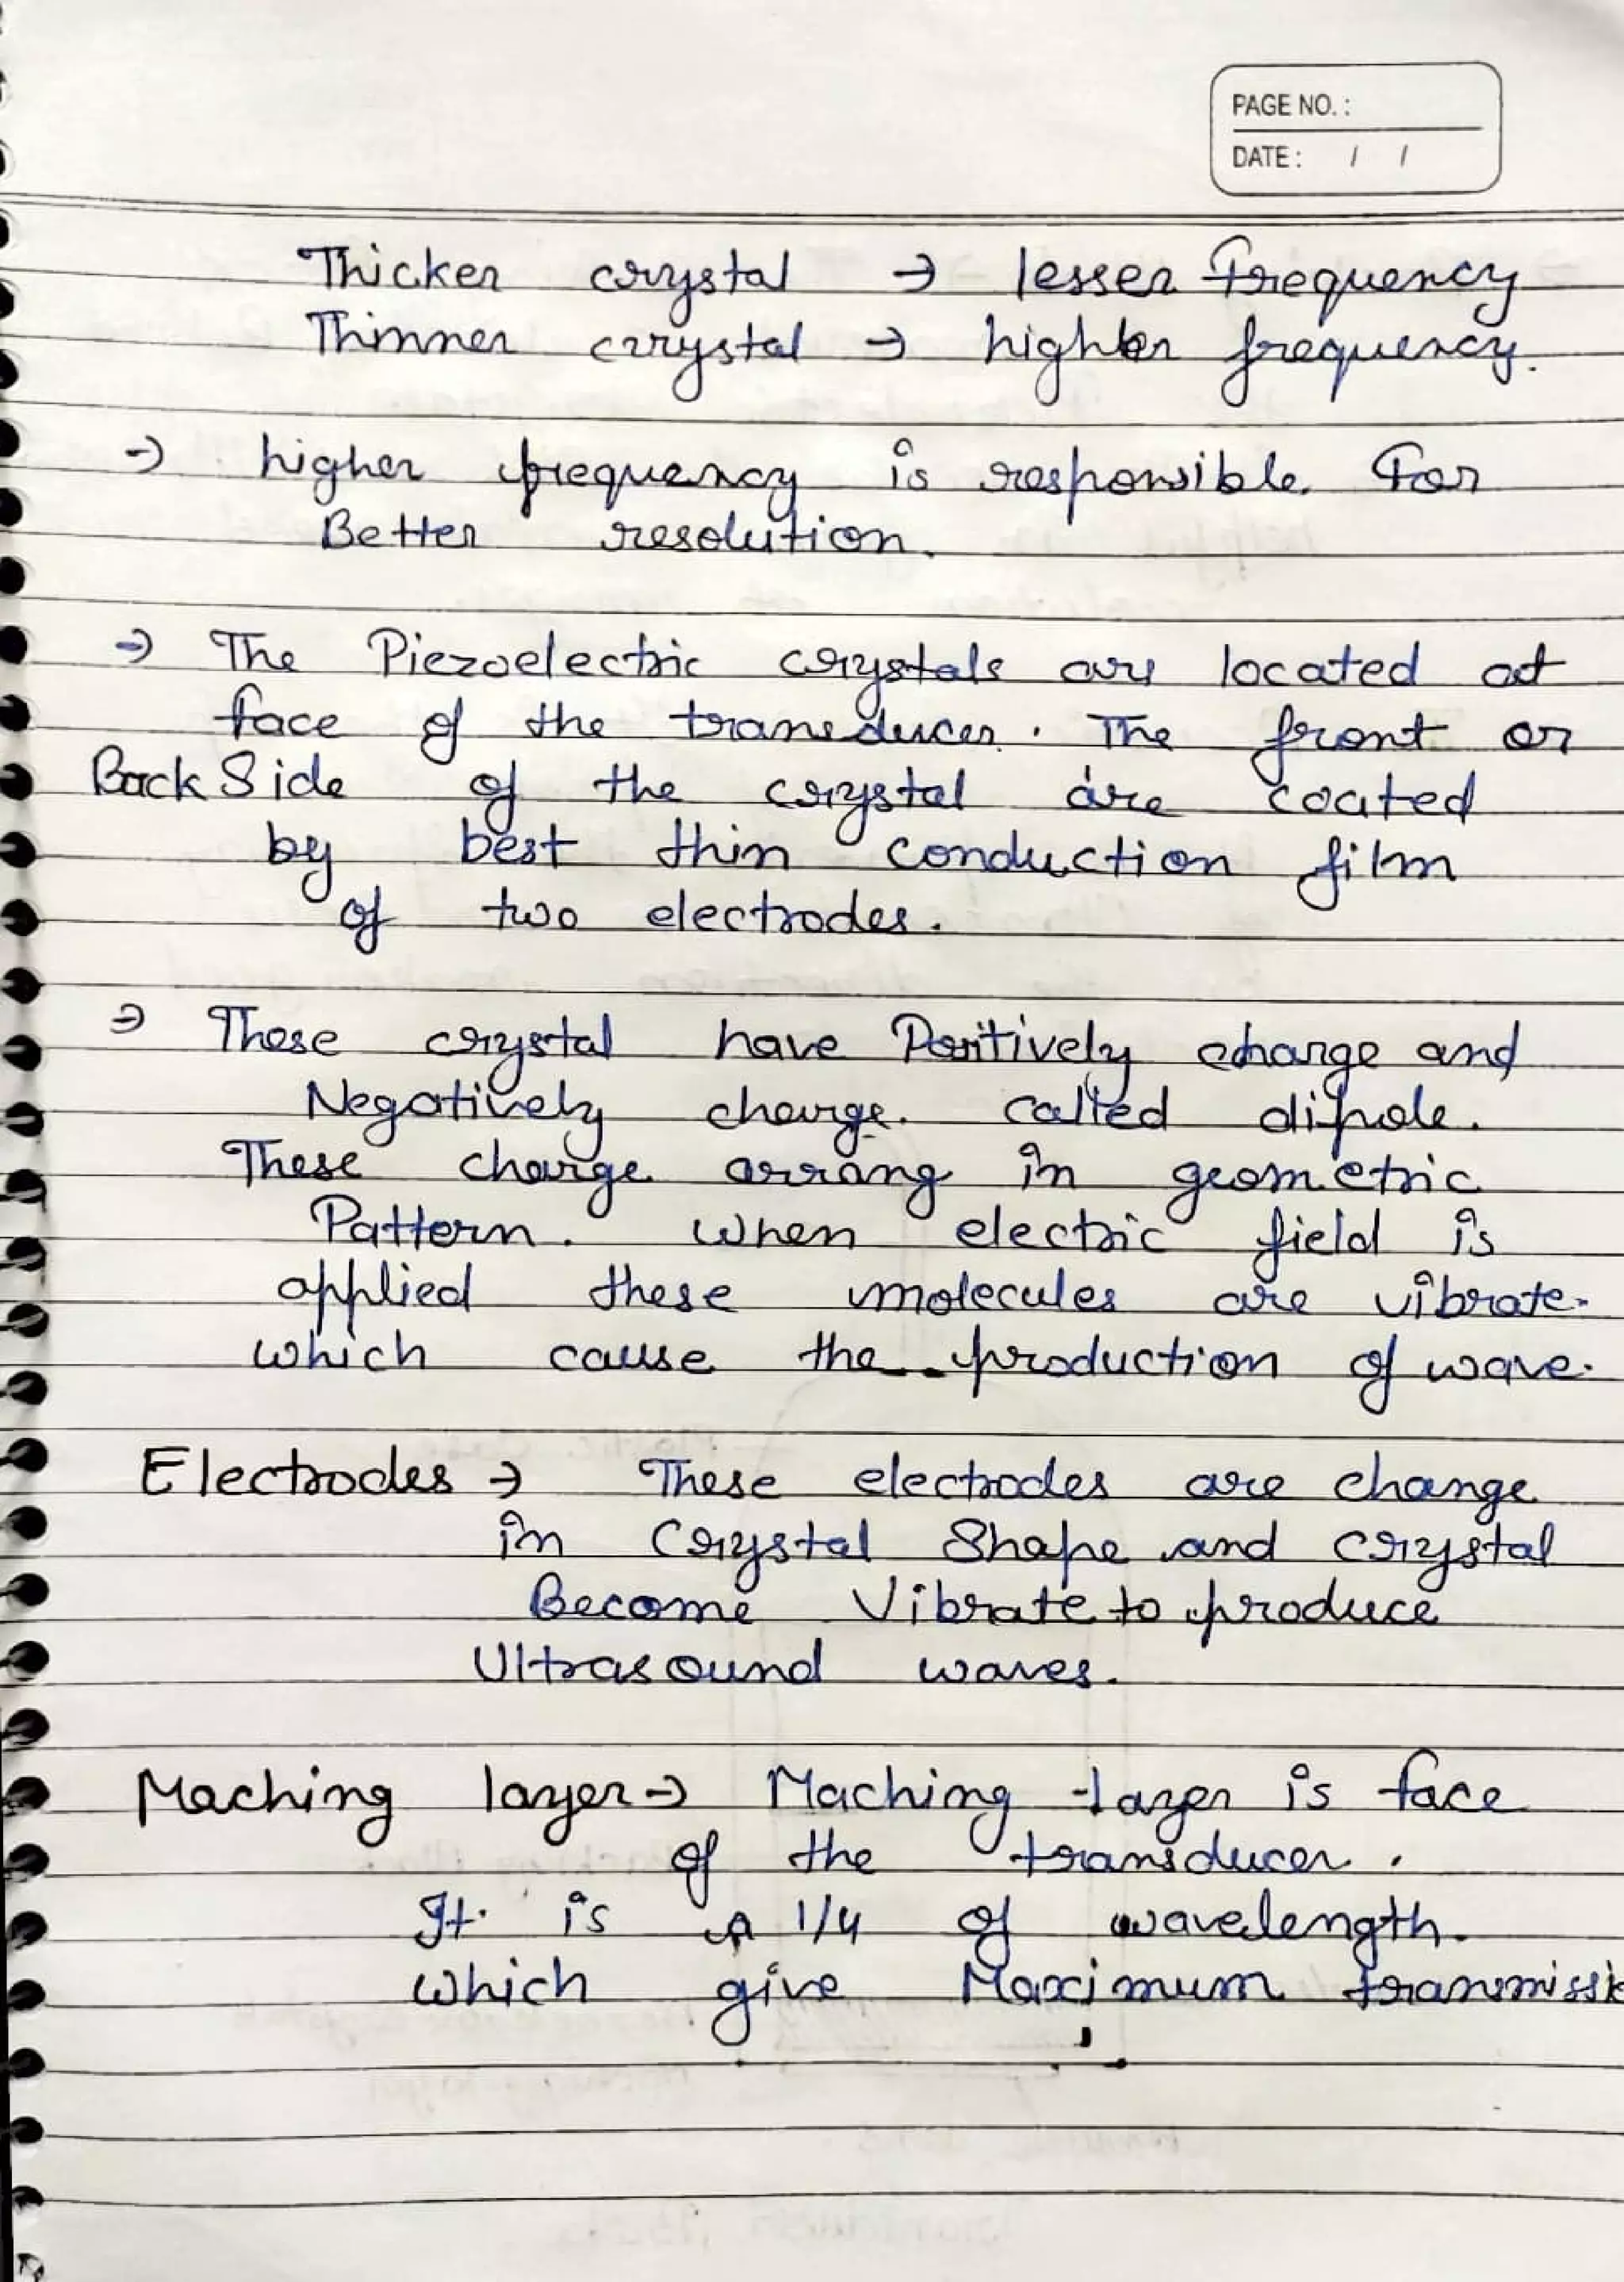 PAGE NO. :
DATE : / /
Thicker crystal → lesser frequency
Thinner crystal → higher frequency.
→ higher frequency is responsible For
Better resolution.
→ The Piezoelectric crystals are located at
face of the transducer. The front or
Back Side of the crystal are coated
by best thin conduction film
of two electrodes.
→ These crystal have Positively charge and
Negatively charge. called dipole.
These charge arrang in geometric
Pattern. When electric field is
applied these molecules are vibrate.
which cause the production of wave.
Electrodes → These electrodes are change
in Crystal Shape and crystal
Become Vibrate to produce
Ultrasound waves.
Maching layer → Maching layer is face
of the transducer.
It is 1/4 of wavelength.
which give Maximum